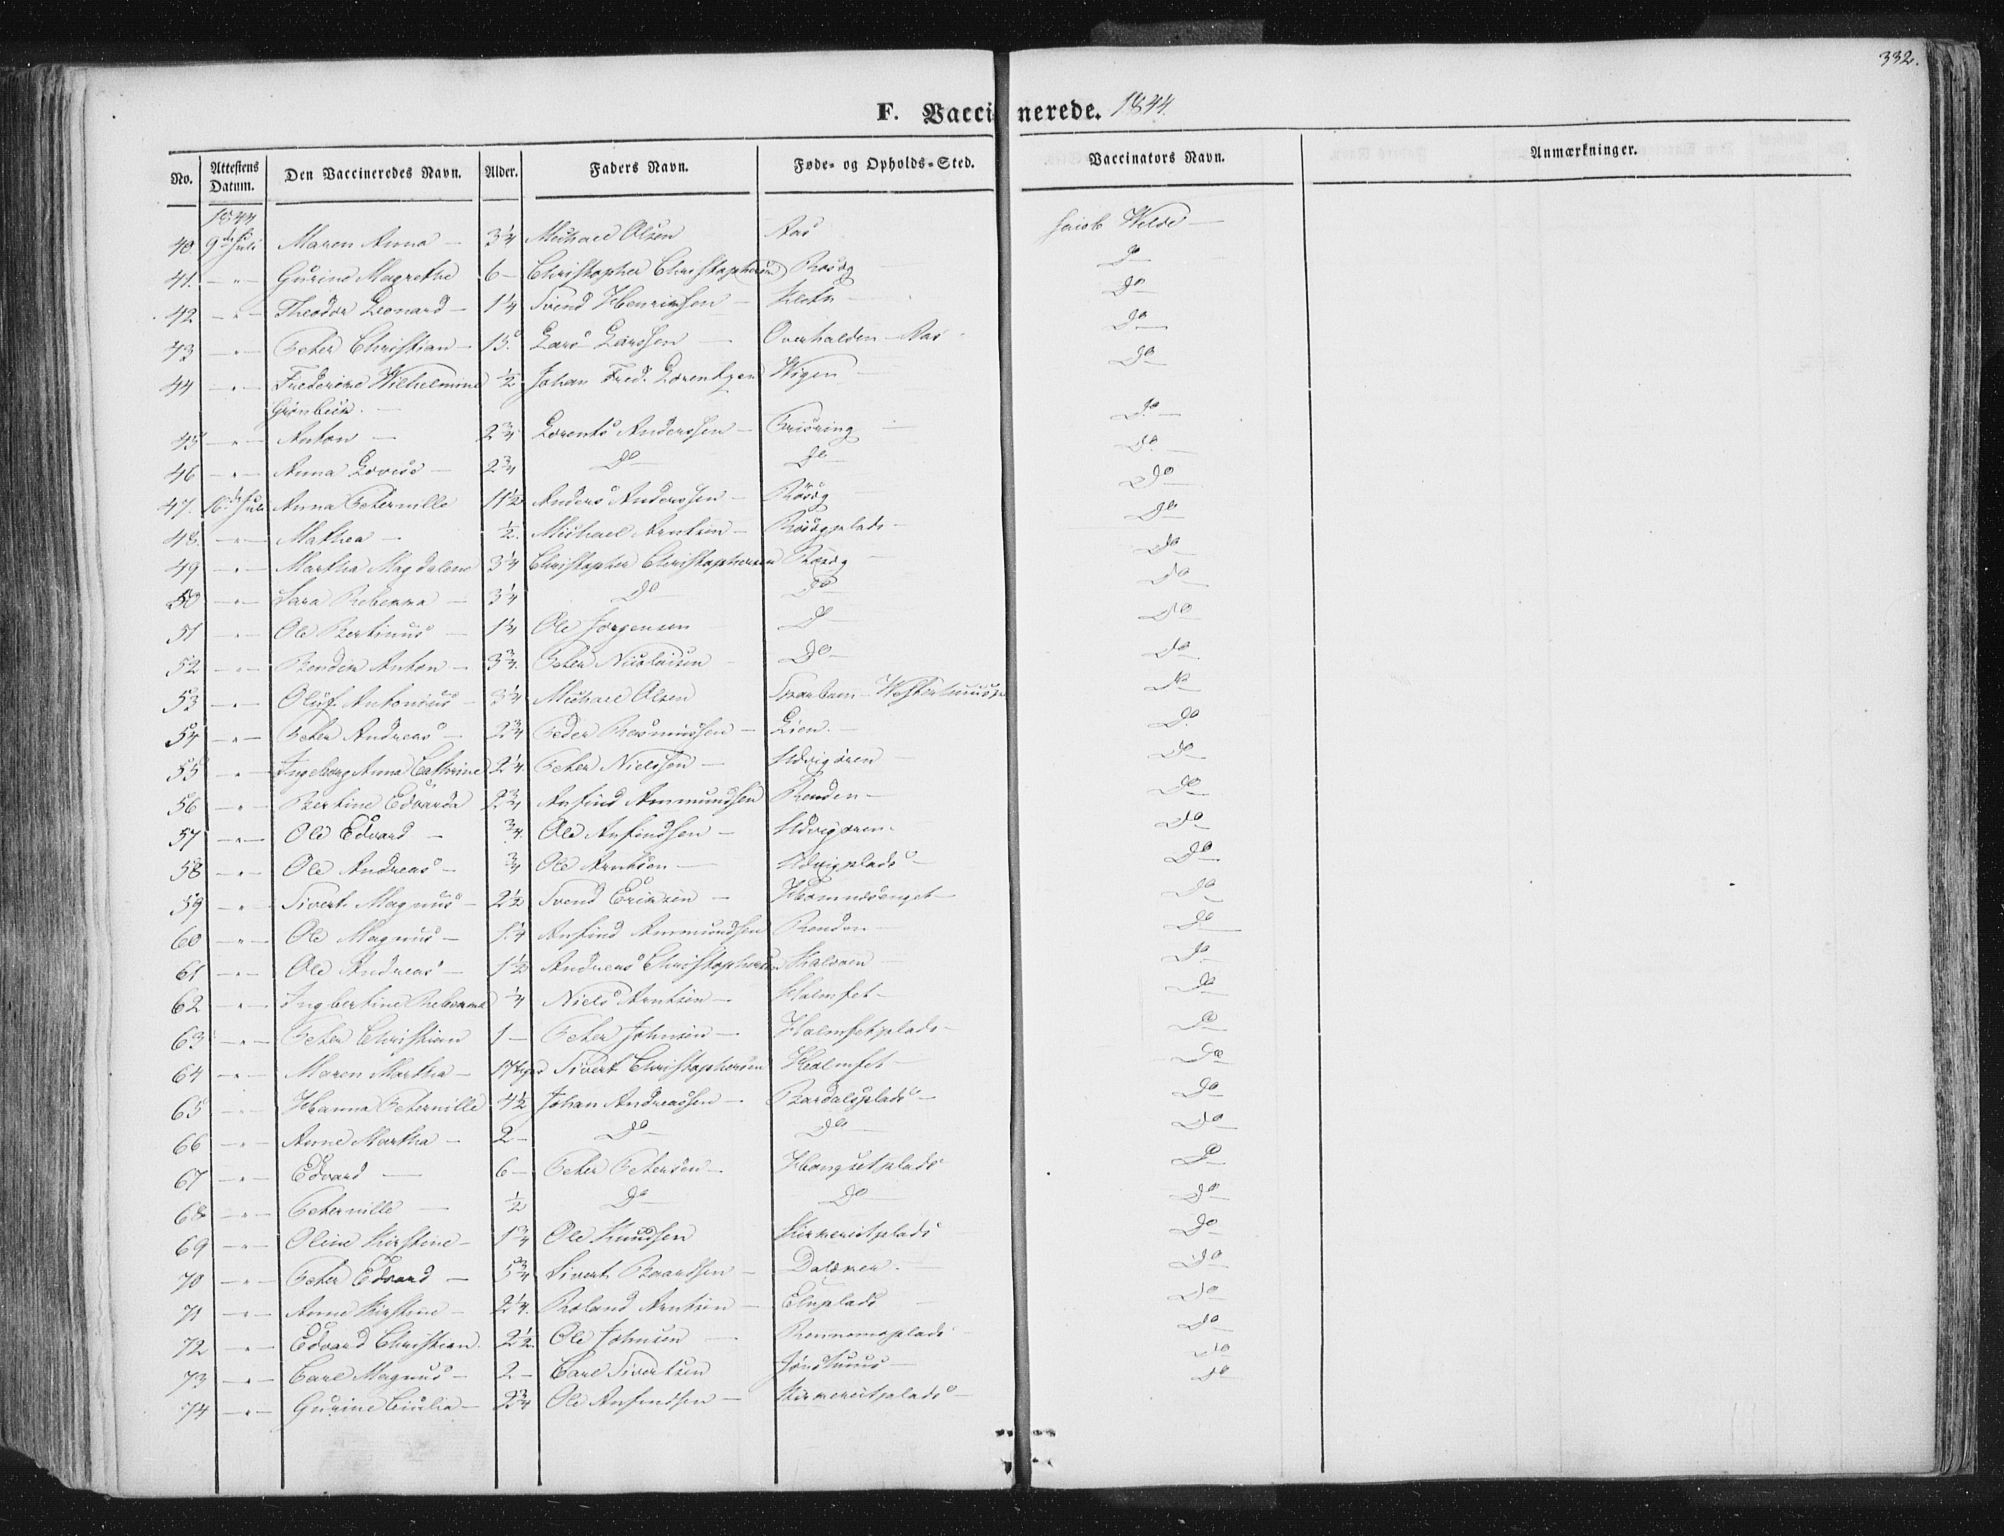 332.
F. Vaccinerede. 1844.
No. Attestens Datum. Den Vaccineredes Navn. Alder. Faders Navn. Føde- og Opholds-Sted. Vaccinators Navn. Anmærkninger.
1844
40 9de Juli Maren Anna — 3 1/4 Michael Olsen Aas Jacob Welde —
41. — " — Gurine Magrethe 6 — Christopher Christophersen Do
42 — " — Theodor Leonard — 1 1/4 Svend Henriksen — Do
43 — " — Peter Christian — Lars Larssen — Overhalden Aas Do
44 — " — Frederike Wilhelmine 1/2 Johan Fred. Lorentzen Wigen — Do
Grönbeck. —
45 — " — Anton — 2 3/4 Lorents Anderssen — Do
46 — " — Anna Lovise — 2 3/4 Do Do Do
47. 10de Juli Anna Peternille 11 1/2 Anders Anderssen — Do
48. — " — Mathea — 1/2. Michael Arntsen — Do
49 — " — Martha Magdalene 3 1/4 Christopher Christophersen Do
50 — " — Sara Rebekka — 3 1/4 Do Do Do
51 — " — Ole Bertinus — 1 3/4 Ole Jørgensen Do Do
52 — " — Anton — 3 3/4. Peter Nicolaisen — Do Do
53 — " — Oluf Antonius — 3 1/4 Michael Olsen Do
54 — " — Peter Andreas — 2 3/4 Peder Rasmussen — Lien. — Do
55 — " — Ingeborg Anna Cathrine 2 1/4 Peter Nielssen — Do
56 — " — Bertine Edvarda 2 3/4 Anfind Ammundsen Do
57 — " — Ole Edvard — 3/4. Ole Anfindsen — Do
58 — " — Ole Andreas — 3/4 Ole Arntsen — Do
59 — " — Sivert Magnus — 2 1/2 Svend Eriksen — Do
60 — " — Ole Magnus — Anfind Ammundsen Do
61 — " — Ole Andreas — 1 1/2 Andreas Christophersen Do
62 — " — Ingbertine Rebekka 1/4 Niels Arntsen — Halmfet — Do
63 — " — Peter Christian 1 — Peter Johnsen — Halmfetplads — Do
64 — " — Maren Martha — Sivert Christophersen Halmfet — Do
65 Hanna Peternille 4 1/2 Johan Andreassen — Bardalsplads — Do
66 — " — Anne Martha — 2 — Do Do Do
67 — " — Edvard — 6 — Peter Petersen — Do
68 — " — Peternille — 1/2 Do Do Do
69 — " — Oline Kirstine — 1 3/4 Ole Knudsen Do
70 — " — Peter Edvard — 5 3/4 Sivert Baardsen — Do
71 — " — Anne Kirstine — 2 1/4. Roland Arntsen — Do
72 — " — Edvard Christian. 2 1/2. Ole Johnsen — Do
73 — " — Carl Magnus — 2 — Carl Sivertsen Do
74 — " — Gurine — 2 3/4 Ole Anfindsen — Do